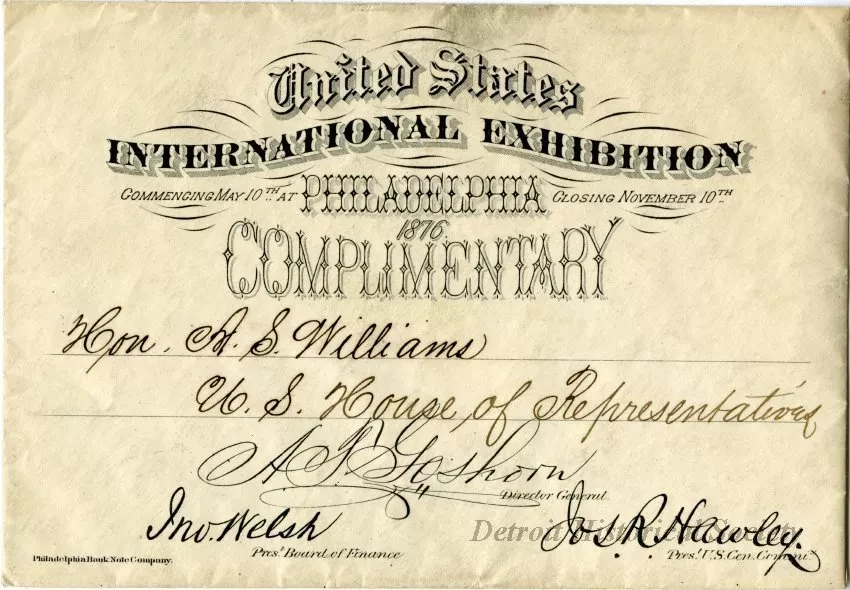 United States
INTERNATIONAL EXHIBITION
COMMENCING MAY 10TH AT PHILADELPHIA CLOSING NOVEMBER 10TH
1876.
COMPLIMENTARY
Hon. A. S. Williams
U. S. House of Representatives
A. T. Goshorn
Director General.
Jno. Welsh
Jos. R. Hawley
Detroit Historical Society
Philadelphia Bank Note Company.
Prest. Board of Finance
Prest. U.S. Cen. Commisn.